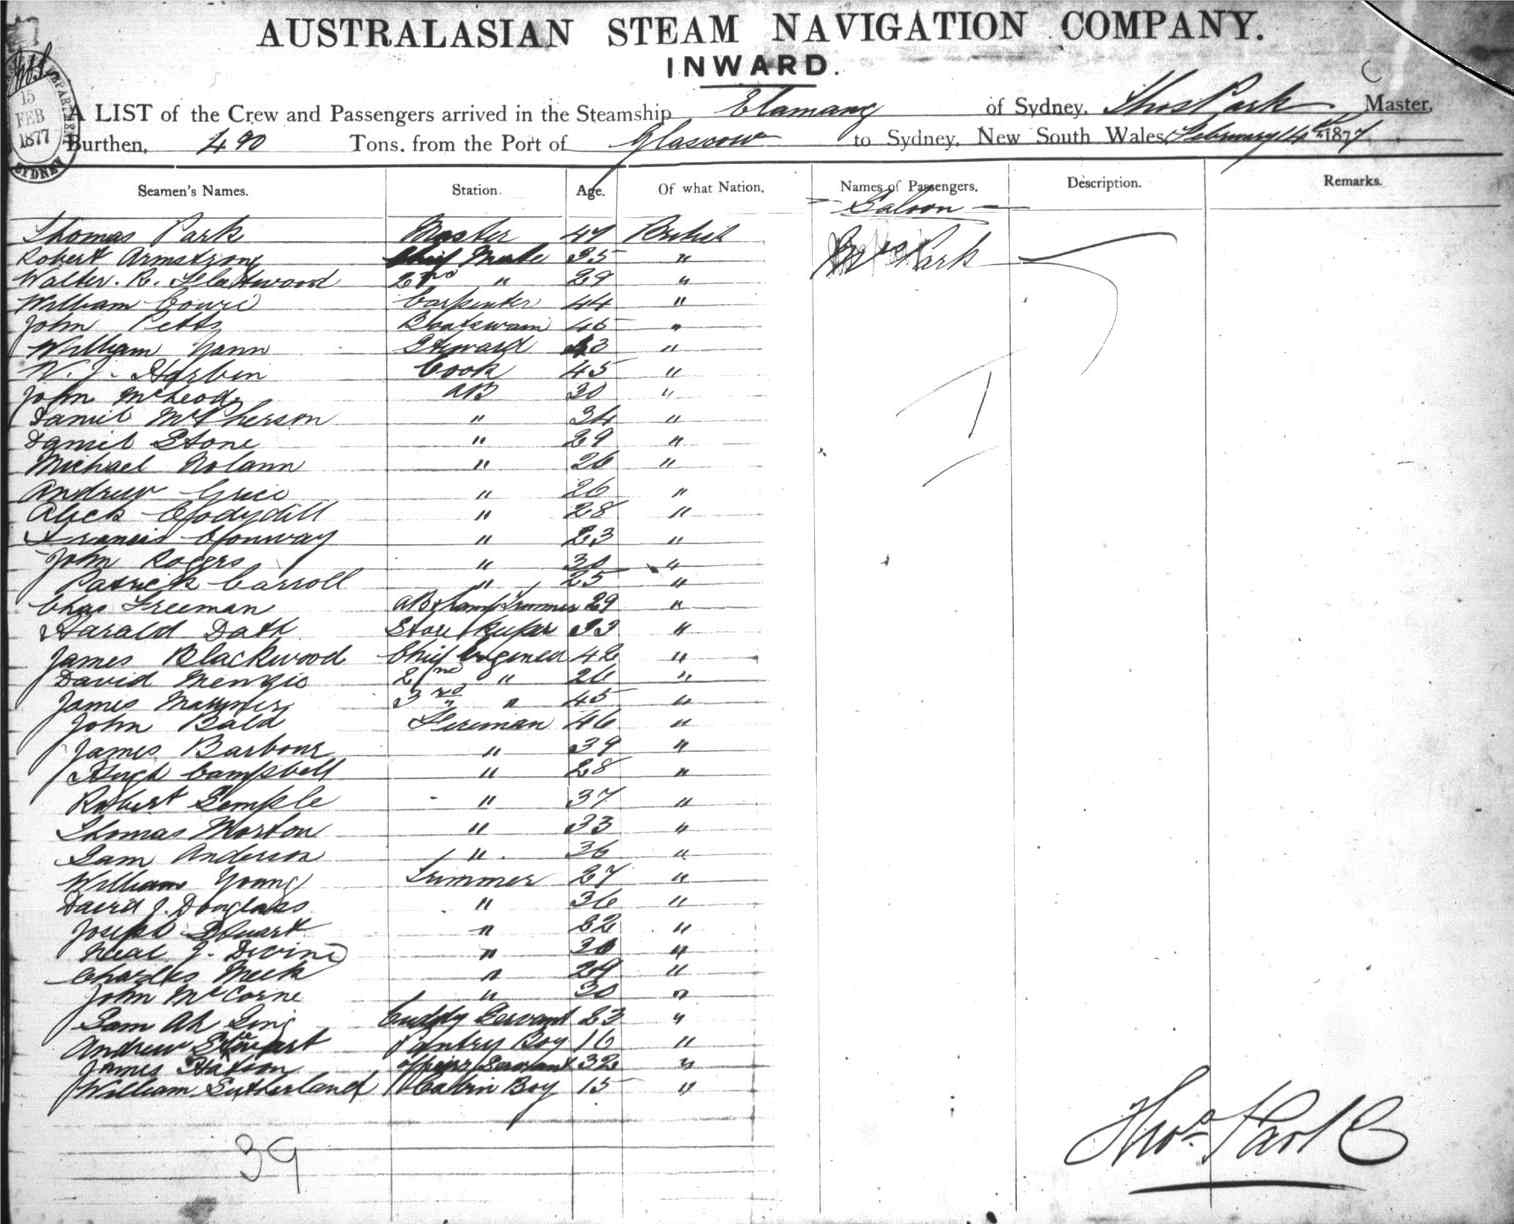 AUSTRALASIAN STEAM NAVIGATION COMPANY.
INWARD.
15 FEB 1877 SYDNEY
A LIST of the Crew and Passengers arrived in the Steamship Elamang of Sydney, Thos Park Master,
Burthen, 490 Tons, from the Port of Glasgow to Sydney, New South Wales, February 14th 1877
Seamen's Names. Station. Age. Of what Nation. Names of Passengers. Description. Remarks.
Saloon
Thomas Park Master 47 British
Mrs Park
Robert Armstrong Chief Mate 35 "
Walter. R. Fleetwood 2nd " 29 "
William Cowie Carpenter 44 "
John Petts Boatswain 45 "
William Nann Steward 43 "
W. J. Harbin Cook 45 "
John McLeod AB 30 "
Daniel McPherson " 34 "
Daniel Stone " 29 "
Michael Nolann " 26 "
Andrew Grice " 26 "
Alick " 28 "
Francis Conway " 23 "
John Rogers " 30 "
Patrick Carroll " 25 "
Chas Freeman AB & Lamp Trimmer 29 "
Harald Dath Store Keeper 33 "
James Blackwood Chief Engineer 42 "
David Menzie 2nd " 26 "
James 3rd " 45 "
John Bald Fireman 46 "
James Barbour " 39 "
Hugh Campbell " 28 "
Robert Semple " 37 "
Thomas Morton " 33 "
Sam Anderson " 36 "
William Young Trimmer 27 "
David J. Douglass " 36 "
Joseph Stuart " 32 "
Neal J. Devine " 30 "
Charles Meek " 29 "
John McCorne " 30 "
Sam Ah Ling Cuddy Servant 23 "
Andrew Stewart Pantry Boy 16 "
James Hatson Officers Servant 32 "
William Sutherland Cabin Boy 15 "
39
Thos Park